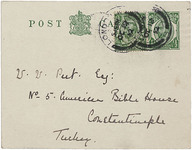 POST
LONDON
W. W. Peet Esq:
No 5. American Bible House
Constantinople
Turkey.